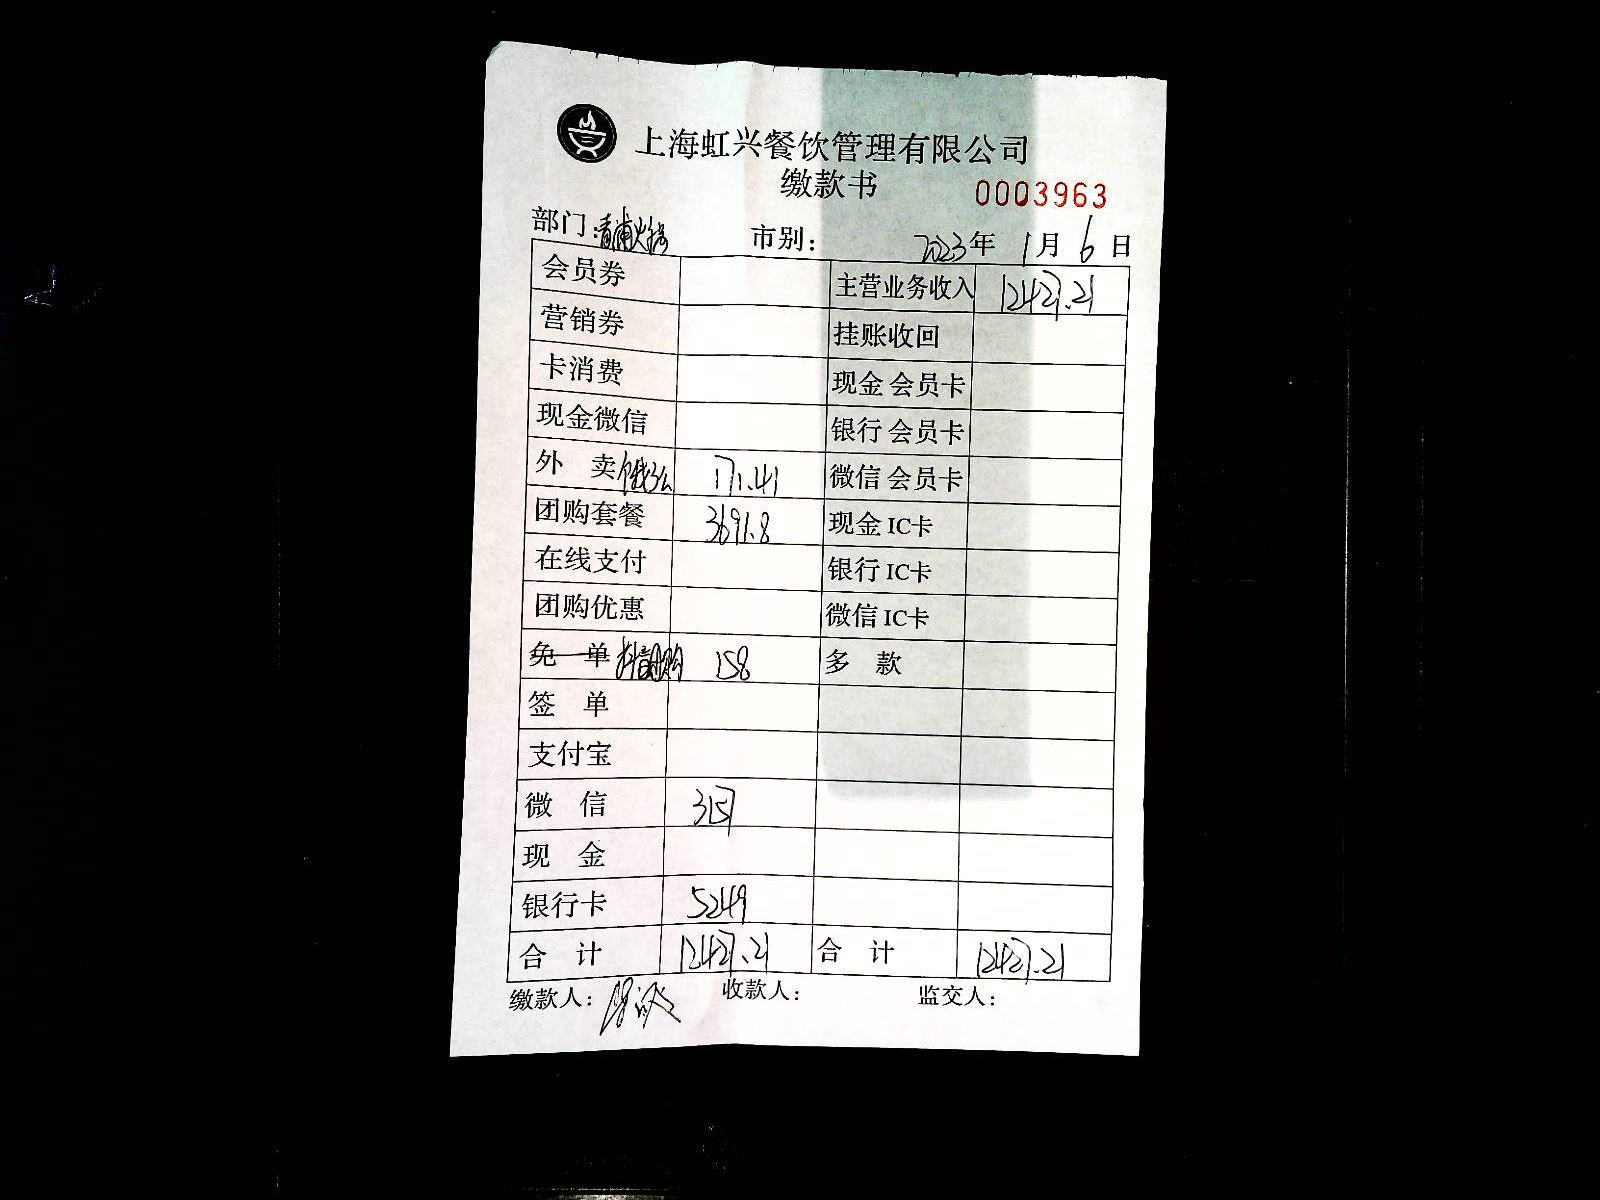 上海虹兴餐饮管理有限公司
缴款书 0003963
部门:青浦火锅 市别: 2023年 1月 6日
会员券 主营业务收入 12427.21
营销券 挂账收回
卡消费 现金会员卡
现金微信 银行会员卡
外 卖饿了么 171.41 微信会员卡
团购套餐 3691.8 现金IC卡
在线支付 银行IC卡
团购优惠 微信IC卡
免 单 抖音团购 158 多 款
签 单
支付宝
微 信 3157
现 金
银行卡 5249
合 计 12427.21 合 计 12427.21
缴款人: 收款人: 监交人: